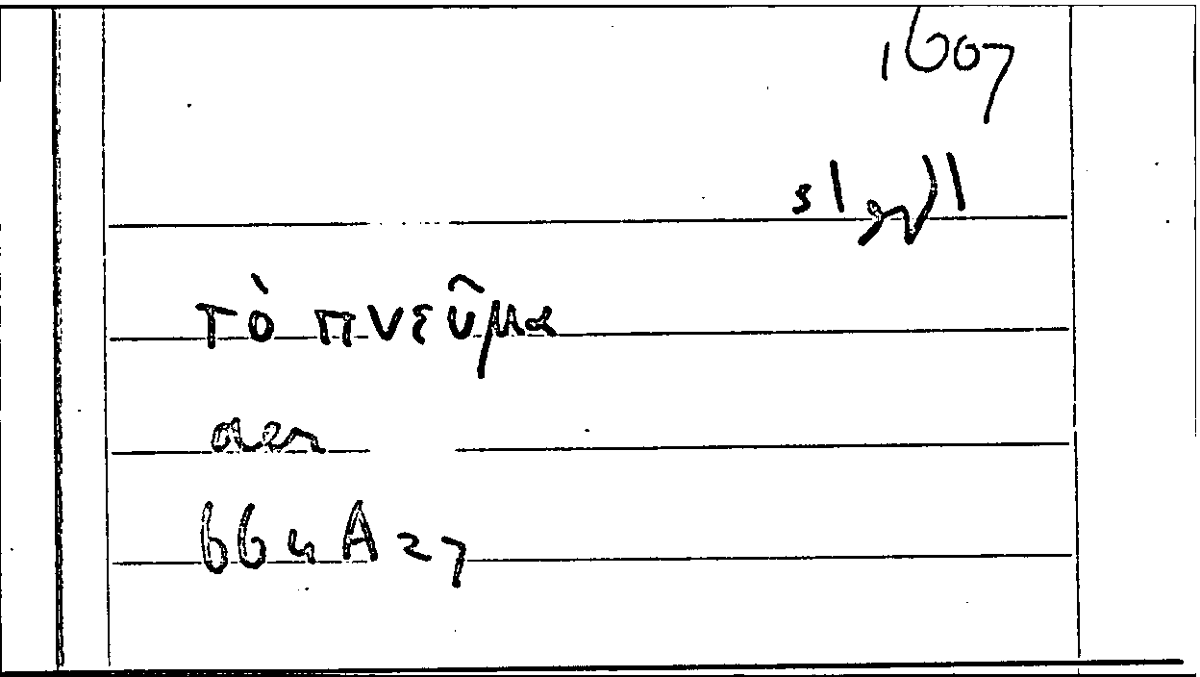 1607
الهواء
τὸ πνεῦμα
aer
664A27